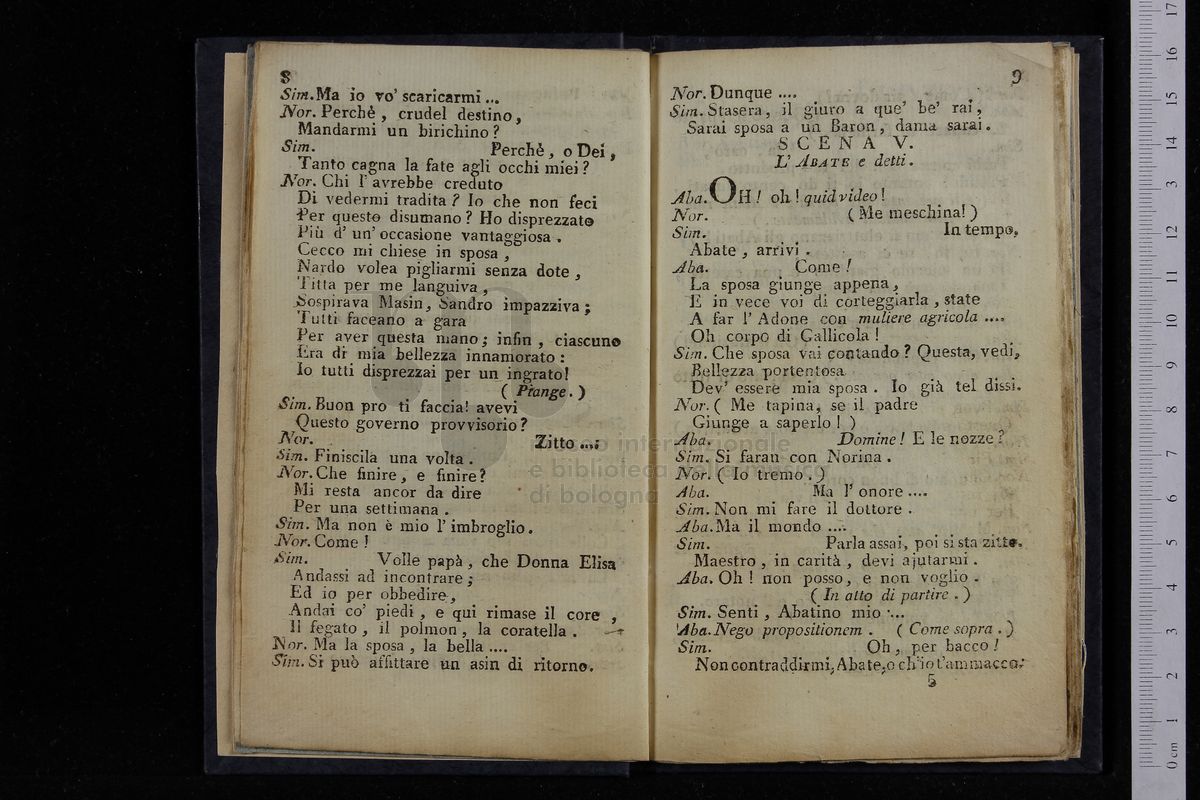 8
Sim. Ma io vo' scaricarmi ...
Nor. Perchè , crudel destino ,
Mandarmi un birichino ?
Sim. Perchè , o Dei ,
Tanto cagna la fate agli occhi miei ?
Nor. Chi l' avrebbe creduto
Di vedermi tradita ? Io che non feci
Per questo disumano ? Ho disprezzato
Più d' un' occasione vantaggiosa .
Cecco mi chiese in sposa ,
Nardo volea pigliarmi senza dote ,
Titta per me languiva ,
Sospirava Masin , Sandro impazziva ;
Tutti faceano a gara
Per aver questa mano ; infin , ciascuno
Era di mia bellezza innamorato :
Io tutti disprezzai per un ingrato !
( Piange . )
Sim. Buon pro ti faccia! avevi
Questo governo provvisorio ?
Nor. Zitto ....
Sim. Finiscila una volta .
Nor. Che finire , e finire ?
Mi resta ancor da dire
Per una settimana .
Sim. Ma non è mio l' imbroglio .
Nor. Come !
Sim. Volle papà , che Donna Elisa
Andassi ad incontrare ;
Ed io per obbedire ,
Andai co' piedi , e qui rimase il core ,
Il fegato , il polmon , la coratella .
Nor. Ma la sposa , la bella ....
Sim. Si può affittare un asin di ritorno .
9
Nor. Dunque ....
Sim. Stasera , il giuro a que' be' rai ,
Sarai sposa a un Baron , dama sarai .
SCENA V.
L' ABATE e detti .
Aba. OH ! oh ! quid video !
Nor. ( Me meschina! )
Sim. In tempo ,
Abate , arrivi .
Aba. Come !
La sposa giunge appena ,
E in vece voi di corteggiarla , state
A far l' Adone con muliere agricola ....
Oh corpo di Gallicola !
Sim. Che sposa vai contando ? Questa, vedi,
Bellezza portentosa
Dev' essere mia sposa . Io già tel dissi .
Nor. ( Me tapina , se il padre
Giunge a saperlo ! )
Aba. Domine ! E le nozze ?
Sim. Si faran con Norina .
Nor. ( Io tremo . )
Aba. Ma l' onore ....
Sim. Non mi fare il dottore .
Aba. Ma il mondo ....
Sim. Parla assai, poi si sta zitto .
Maestro , in carità , devi ajutarmi .
Aba. Oh ! non posso , e non voglio .
( In atto di partire . )
Sim. Senti , Abatino mio ....
Aba. Nego propositionem . ( Come sopra . )
Sim. Oh , per bacco !
Non contraddirmi, Abate, o ch'io t'ammacco.
5
museo internazionale
e biblioteca della musica
di bologna
0 cm 1 2 3 4 5 6 7 8 9 10 11 12 13 14 15 16 17